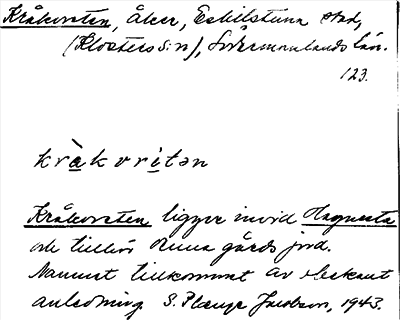 Kråkvreten, Åker, Eskilstuna stad,
(Klosters s:n), Södermanlands län.
123.
kràkvritən
Kråkvreten ligger invid Hagnesta
och tillhör Runa gårds jord.
Namnet tillkommet av obekant
anledning. S. Jacobson, 1943.